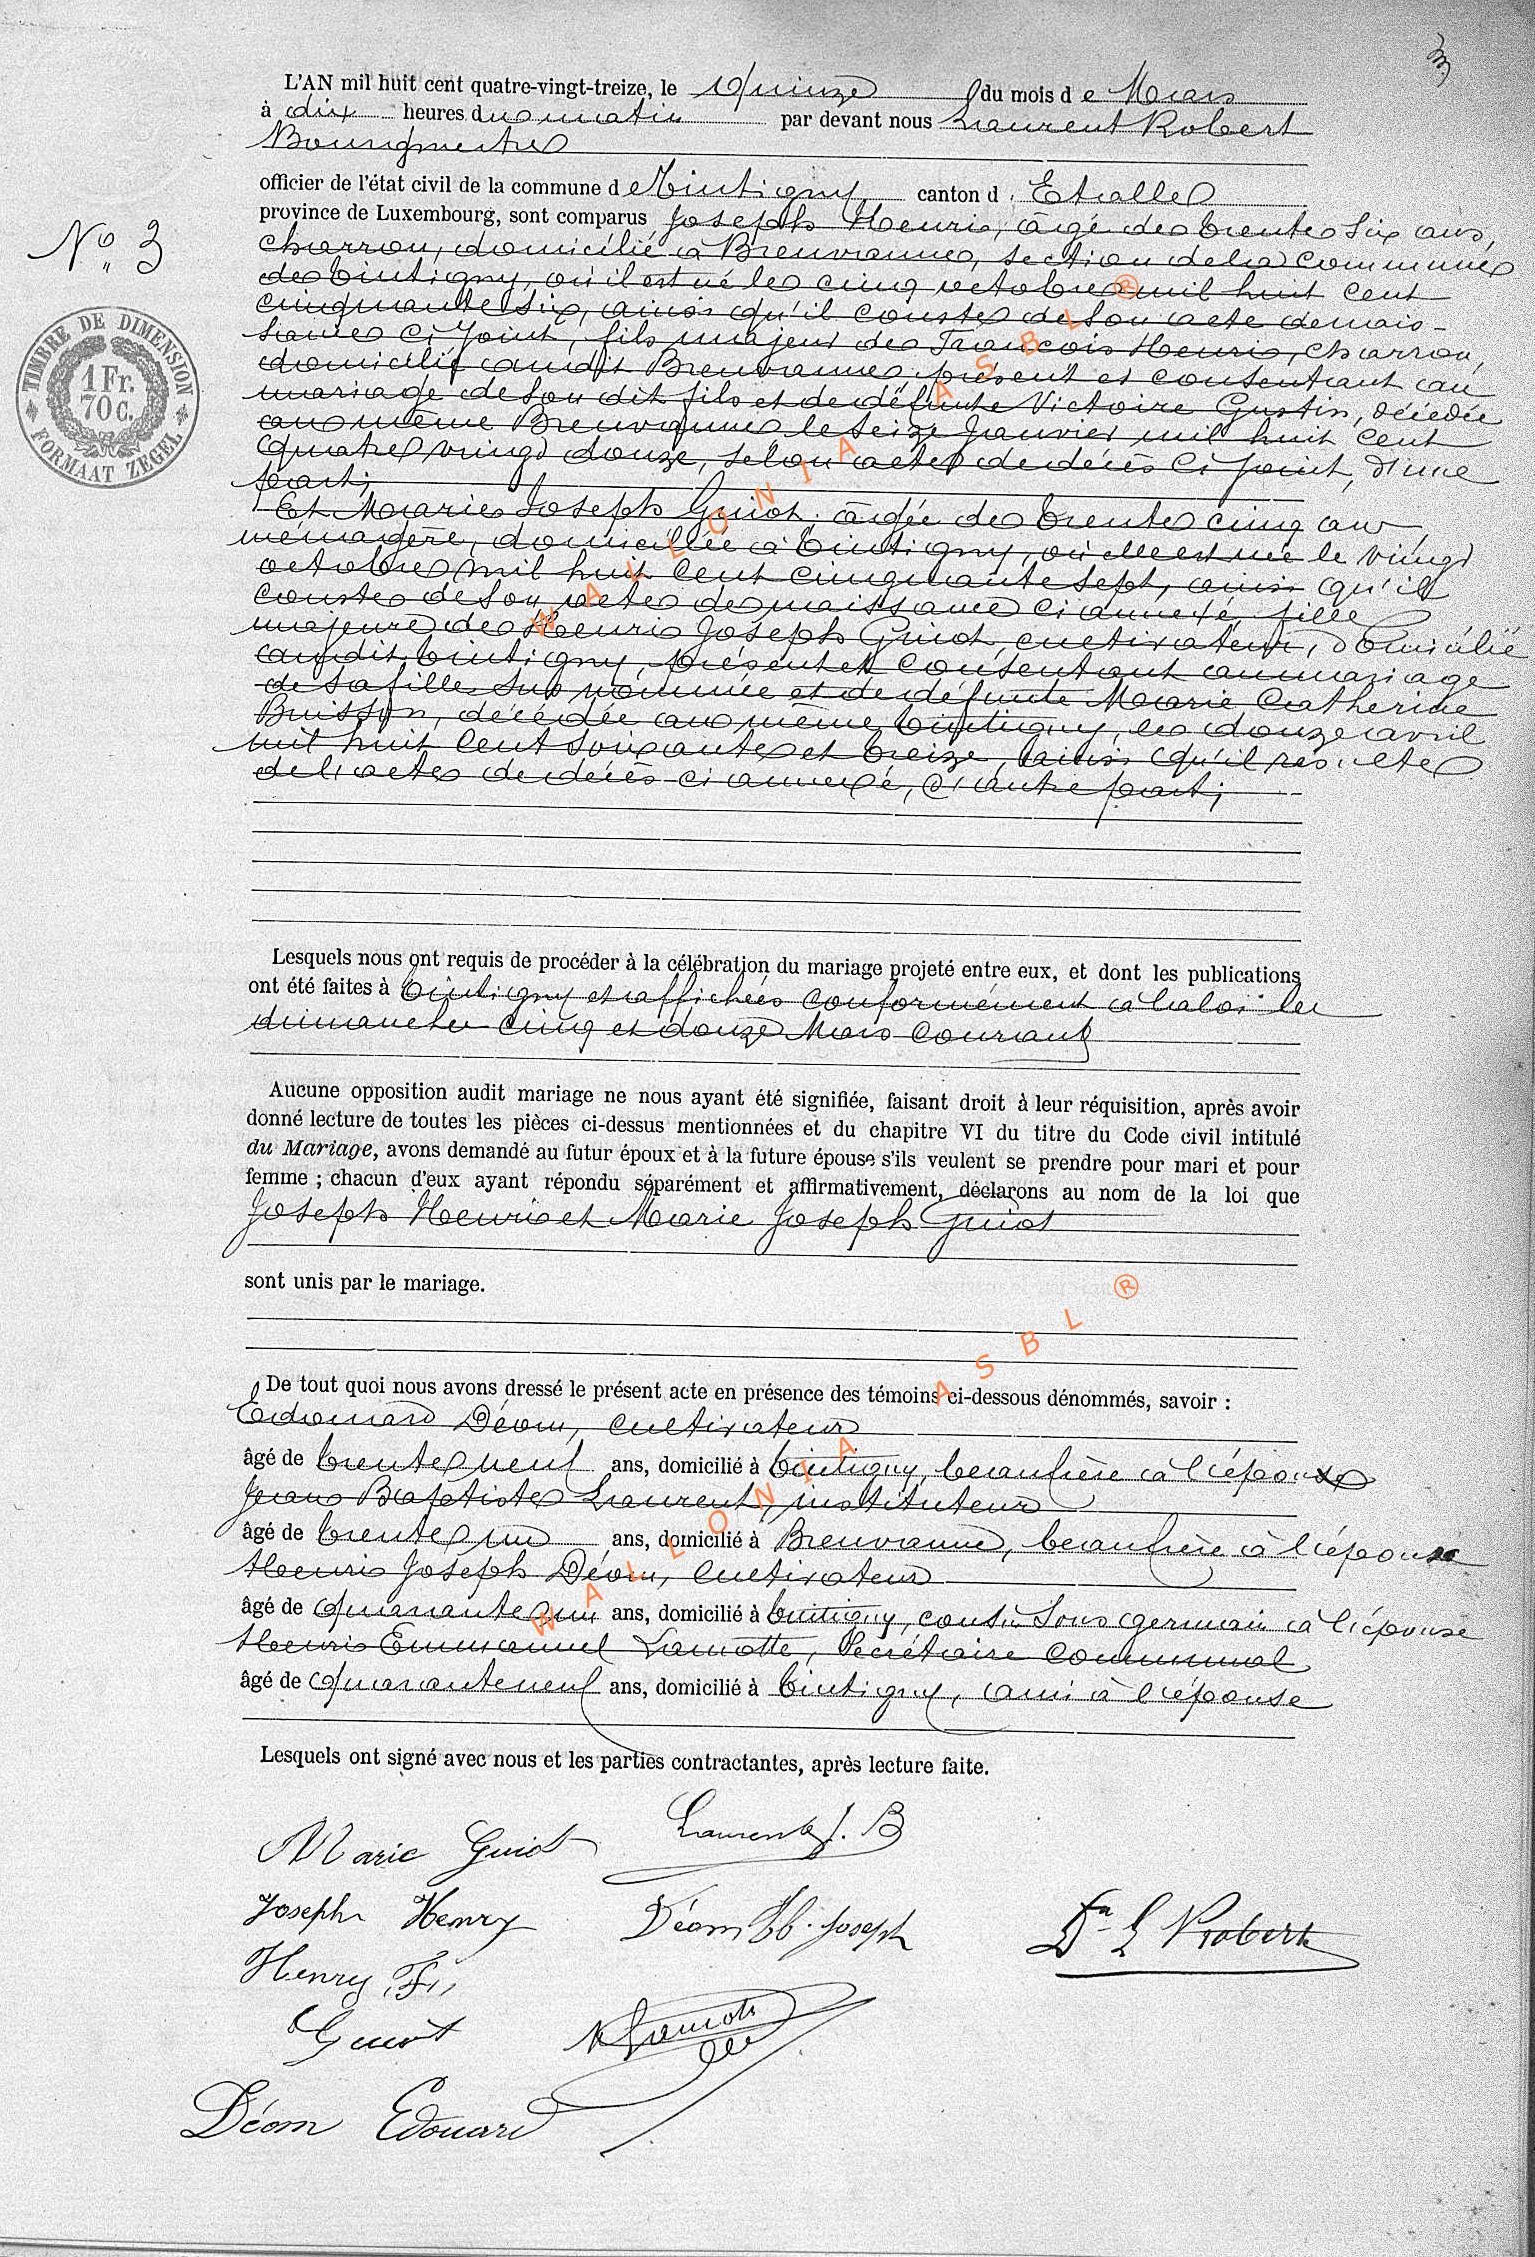 3
L'AN mil huit cent quatre-vingt-treize, le quinze du mois de Mars
à dix heures du matin par devant nous Laurent Robert
Bourgmestre
officier de l'état civil de la commune de Tintigny canton d'Etalle
N° 3
province de Luxembourg, sont comparus Joseph Henri, âgé de trente six ans,
charron, domicilié à Breuvanne, section de la commune
de Tintigny, où il est né le cinq octobre mil huit cent
cinquante six, ainsi qu'il conste de son acte de nais-
sance ci joint, fils majeur de François Henri, charron,
domicilié audit Breuvanne présent et consentant au
mariage de son dit fils et de défunte Victoire Gustin, décédée
au même Breuvanne le seize Janvier mil huit cent
quatre vingt douze, selon acte de décès ci joint, d'une
part;
Et Marie Joseph Guiot, âgée de trente cinq ans,
ménagère, domiciliée à Tintigny, où elle est née le vingt
octobre mil huit cent cinquante sept, ainsi qu'il
conste de son acte de naissance ci annexé, fille
majeure de Henri Joseph Guiot, cultivateur, domicilié
audit Tintigny, présent et consentant au mariage
de sa fille sus nommée et de défunte Marie Catherine
Buisson, décédée au même Tintigny, le douze avril
mil huit cent soixante et treize, ainsi qu'il résulte
de l'acte de décès ci annexé, d'autre part;
TIMBRE DE DIMENSION
1 Fr.
70 c.
FORMAAT ZEGEL
Lesquels nous ont requis de procéder à la célébration du mariage projeté entre eux, et dont les publications
ont été faites à Tintigny et affichées conformément à la loi les
dimanches cinq et douze Mars courant
Aucune opposition audit mariage ne nous ayant été signifiée, faisant droit à leur réquisition, après avoir
donné lecture de toutes les pièces ci-dessus mentionnées et du chapitre VI du titre du Code civil intitulé
du Mariage, avons demandé au futur époux et à la future épouse s'ils veulent se prendre pour mari et pour
femme ; chacun d'eux ayant répondu séparément et affirmativement, déclarons au nom de la loi que
Joseph Henri et Marie Joseph Guiot
sont unis par le mariage.
De tout quoi nous avons dressé le présent acte en présence des témoins ci-dessous dénommés, savoir :
Edouard Déom, cultivateur
âgé de trente neuf ans, domicilié à Tintigny, beaufrère à l'épouse
Jean Baptiste Laurent, instituteur
âgé de trente un ans, domicilié à Breuvanne, beaufrère à l'épouse
Henri Joseph Déom, cultivateur
âgé de quarante un ans, domicilié à Tintigny, cousin sous germain à l'épouse
Henri Emmanuel Lamotte, Secrétaire communal
âgé de quarante neuf ans, domicilié à Tintigny, ami à l'épouse
Lesquels ont signé avec nous et les parties contractantes, après lecture faite.
Marie Guiot Laurent J. B
Joseph Henry Déom H. Joseph Dr L Robert
Henry F.
Guiot Lamotte
Déom Edouard
WALLONIA ASBL ®
WALLONIA ASBL ®